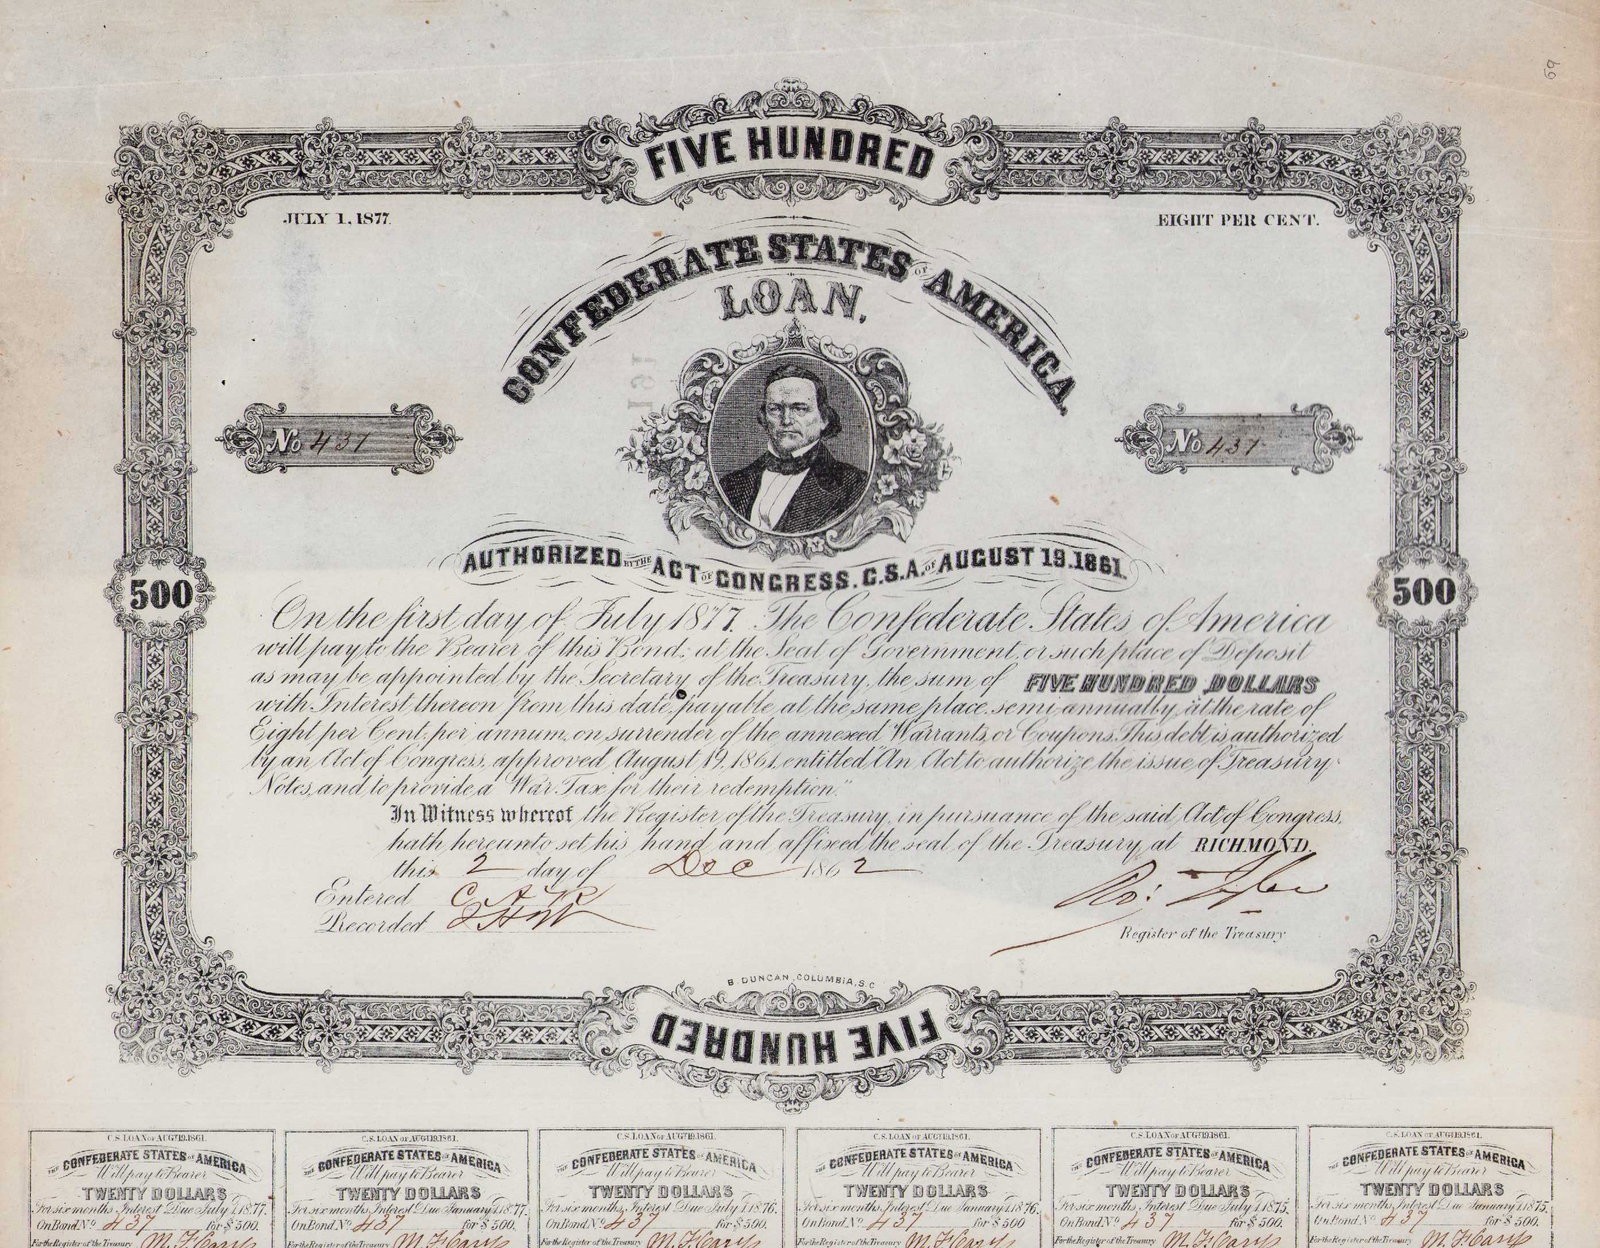 69
FIVE HUNDRED
JULY 1, 1877.
EIGHT PER CENT.
CONFEDERATE STATES OF AMERICA
LOAN,
No 437
No 437
AUTHORIZED BY THE ACT OF CONGRESS. C.S.A. OF AUGUST 19.1861.
500
500
On the first day of July 1877. The Confederate States of America
will pay to the Bearer of this Bond, at the Seat of Government, or such place of Deposit
as may be appointed by the Secretary of the Treasury, the sum of FIVE HUNDRED DOLLARS
with Interest thereon from this date, payable, at the same place, semi-annually, at the rate of
Eight per Cent. per annum, on surrender of the annexed Warrants, or Coupons. This debt is authorized
by an Act of Congress, approved August 19, 1861, entitled "An Act to authorize the issue of Treasury
Notes, and to provide a War Tax for their redemption."
In Witness whereof the Register of the Treasury, in pursuance of the said Act of Congress,
hath hereunto set his hand and affixed the seal of the Treasury, at RICHMOND,
this 2 day of Dec 1862
Entered C.A.R
Recorded
Ro: Tyler
Register of the Treasury
B. DUNCAN, COLUMBIA, S.C
FIVE HUNDRED
C.S. LOAN OF AUGT 19.1861.
THE CONFEDERATE STATES OF AMERICA
Will pay to Bearer
TWENTY DOLLARS
For six months, Interest Due July 1, 1877.
On Bond No 437 for $500.
For the Register of the Treasury
C.S. LOAN OF AUGT 19.1861.
THE CONFEDERATE STATES OF AMERICA
Will pay to Bearer
TWENTY DOLLARS
For six months, Interest Due January 1, 1877.
On Bond No 437 for $500.
For the Register of the Treasury
C.S. LOAN OF AUGT 19.1861.
THE CONFEDERATE STATES OF AMERICA
Will pay to Bearer
TWENTY DOLLARS
For six months, Interest Due July 1, 1876.
On Bond No 437 for $500.
For the Register of the Treasury
C.S. LOAN OF AUGT 19.1861.
THE CONFEDERATE STATES OF AMERICA
Will pay to Bearer
TWENTY DOLLARS
For six months, Interest Due January 1, 1876.
On Bond No 437 for $500.
For the Register of the Treasury
C.S. LOAN OF AUGT 19.1861.
THE CONFEDERATE STATES OF AMERICA
Will pay to Bearer
TWENTY DOLLARS
For six months, Interest Due July 1, 1875.
On Bond No 437 for $500.
For the Register of the Treasury
C.S. LOAN OF AUGT 19.1861.
THE CONFEDERATE STATES OF AMERICA
Will pay to Bearer
TWENTY DOLLARS
For six months, Interest Due January 1, 1875.
On Bond No 437 for $500.
For the Register of the Treasury